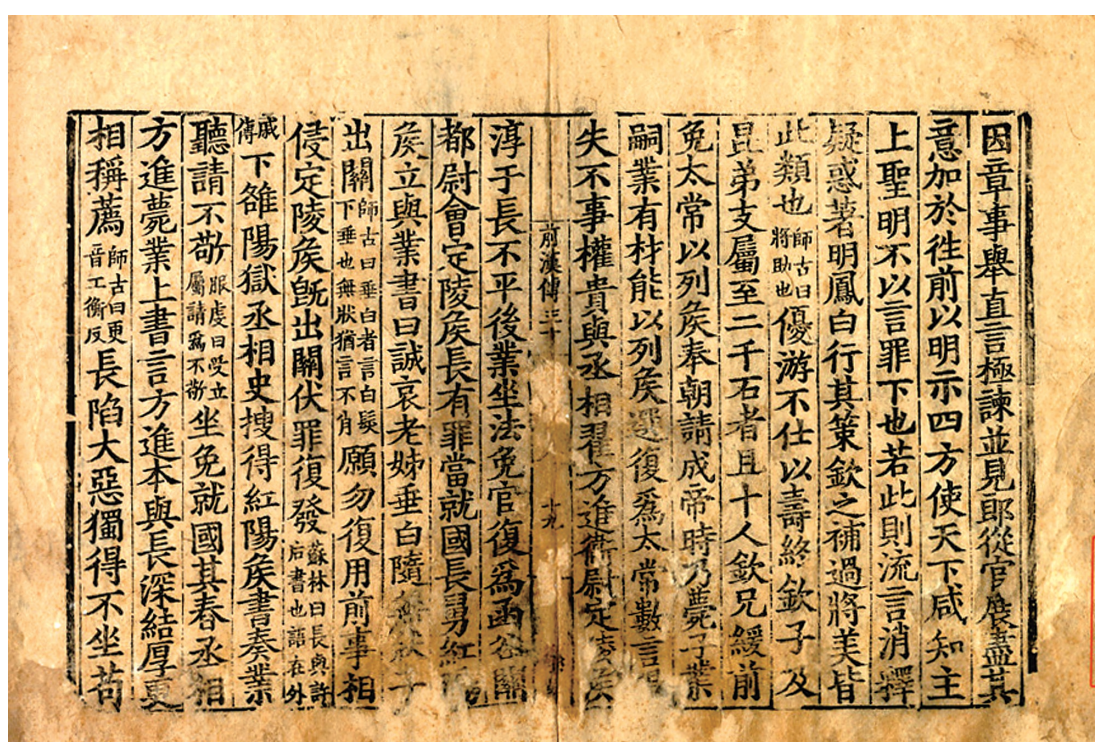 因章事舉直言極諫並見郎從官展盡其
意加於徃前以明示四方使天下咸知主
上聖明不以言罪下也若此則流言消釋
疑惑著明鳳白行其策欽之補過將美皆
此類也師古曰將助也優游不仕以壽終欽子及
昆弟支屬至二千石者且十人欽兄緩前
免太常以列矦奉朝請成帝時乃薨子業
嗣業有材能以列矦選復爲太常數言
失不事權貴與丞相翟方進衞尉定陵矦
前漢傳三十 十九
淳于長不平後業坐法免官復爲函谷關
都尉會定陵矦長有罪當就國長舅紅陽
矦立與業書曰誠哀老姊垂白隨無狀子
出關師古曰垂白者言白髮下垂也無狀猶言不肖願勿復用前事相
侵定陵矦旣出關伏罪復發蘇林曰長與許后書也語在外
戚傳下雒陽獄丞相史搜得紅陽矦書奏業
聽請不敬服虔曰受立屬請爲不敬坐免就國其春丞相
方進薨業上書言方進本與長深結厚更
相稱薦師古曰更音工衡反長陷大惡獨得不坐苟